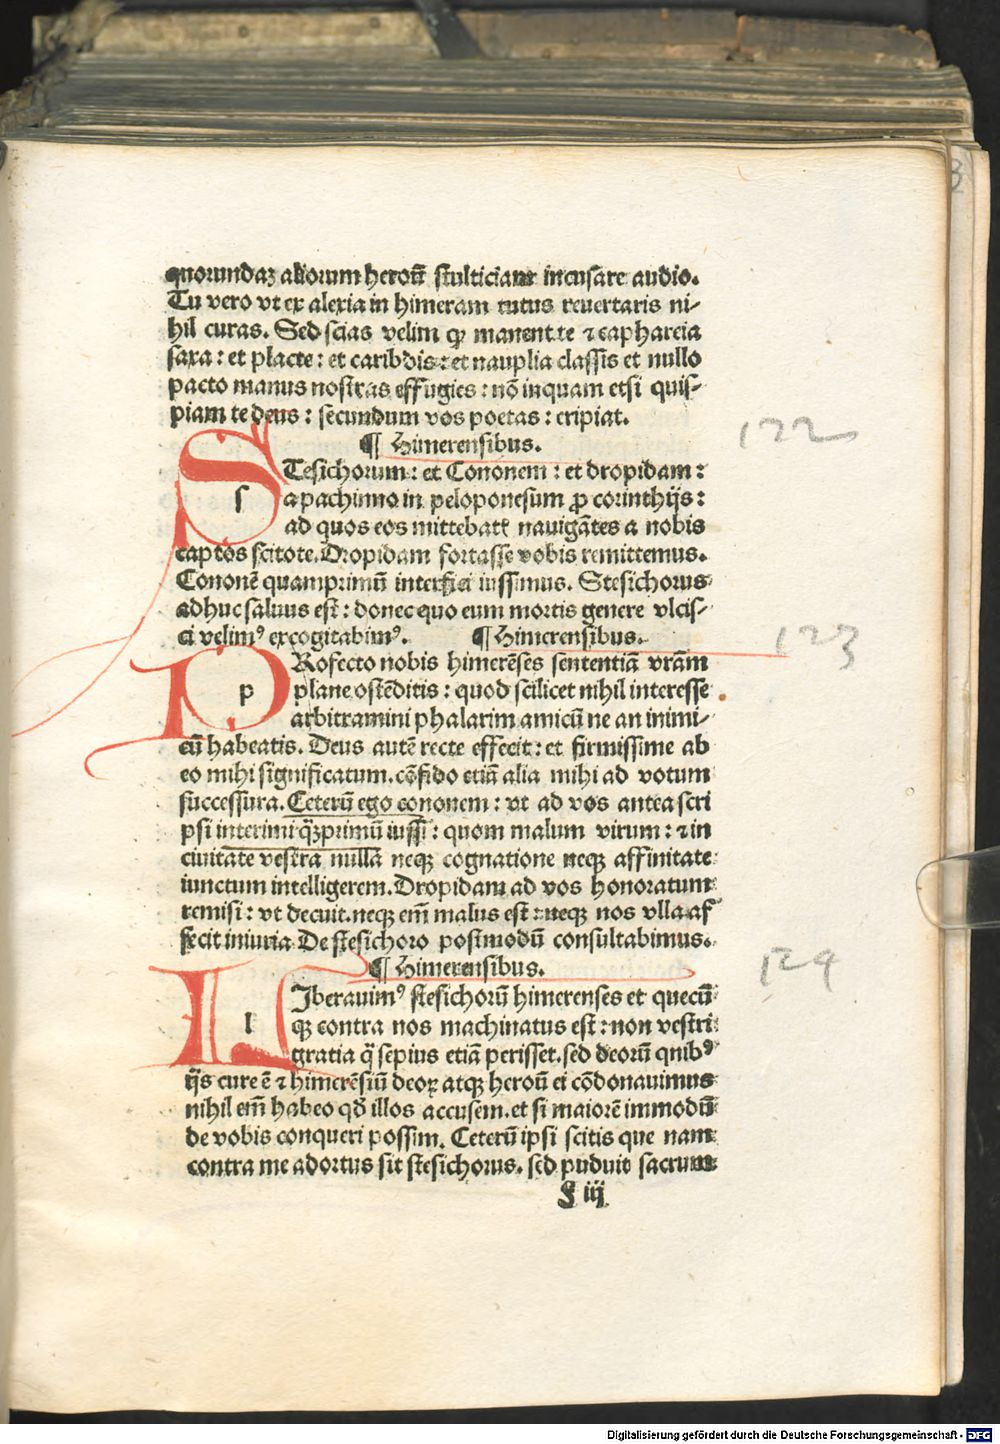 quorundaꝫ aliorum heroū stulticiam incusare audio.
Tu vero vt ex alexia in himeram tutus reuertaris ni-
hil curas. Sed scias velim ꝙ manent te ⁊ caphareia
saxa: et placte: et caribdis: et nauplia classis et nullo
pacto manus nostras effugies: nō inquam etsi quis-
piam te deus: secundum vos poetas: eripiat.
¶ Himerensibus.
122
STesichorum: et Cononem: et dropidam:
a pachinno in peloponesum ꝓ corinthijs:
ad quos eos mittebat nauigātes a nobis
captos scitote. Dropidam fortasse vobis remittemus.
Cononē quamprimū interfici iussimus. Stesichorus
adhuc saluus est: donec quo eum mortis genere vlcis-
ci velimꝰ excogitabimꝰ. ¶ Himerensibus.
123
PRofecto nobis himerēses sententiā vrām
plane ostēditis: quod scilicet nihil interesse
arbitramini phalarim amicū ne an inimi-
cū habeatis. Deus autē recte effecit: et firmissime ab
eo mihi significatum. cōfido etiā alia mihi ad votum
successura. Ceterū ego cononem: vt ad vos antea scri
psi interimi qꝫprimū iussi: quom malum virum: ⁊ in
ciuitate vestra nulla neqꝫ cognatione neqꝫ affinitate
iunctum intelligerem. Dropidam ad vos honoratum
remisi: vt decuit. neqꝫ em̄ malus est: neqꝫ nos vlla af
fecit iniuria De stesichoro postmodū consultabimus.
¶ Himerensibus.
124
LIberauimꝰ stesichorū himerenses et quecū
qꝫ contra nos machinatus est: non vestri
gratia q̄ sepius etiā perisset. sed deorū quibꝰ
ijs cure ē ⁊ himerēsiū deoꝝ atqꝫ heroū ei cōdonauimus
nihil em̄ habeo qđ illos accusem. et si maiorē immodū
de vobis conqueri possim. Ceterū ipsi scitis que nam
contra me adortus sit stesichorus. sed puduit sacrum
f iij
Digitalisierung gefördert durch die Deutsche Forschungsgemeinschaft - DFG